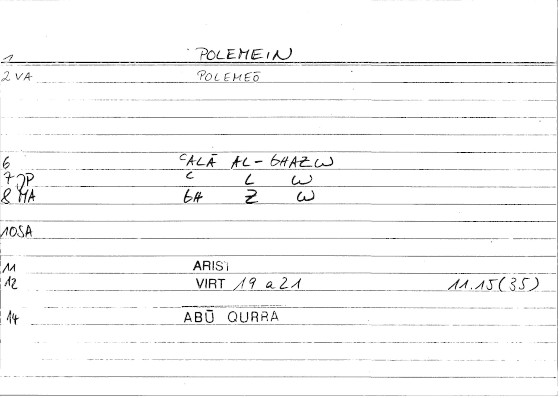 1 POLEMEIN
2 VA POLEMEŌ
6 ʿALĀ AL-GHAZW
7 JP ʿ L W
8 MA GH Z W
10SA
11 ARIST
12 VIRT 19 a 21 11.15(35)
14 ABŪ QURRA